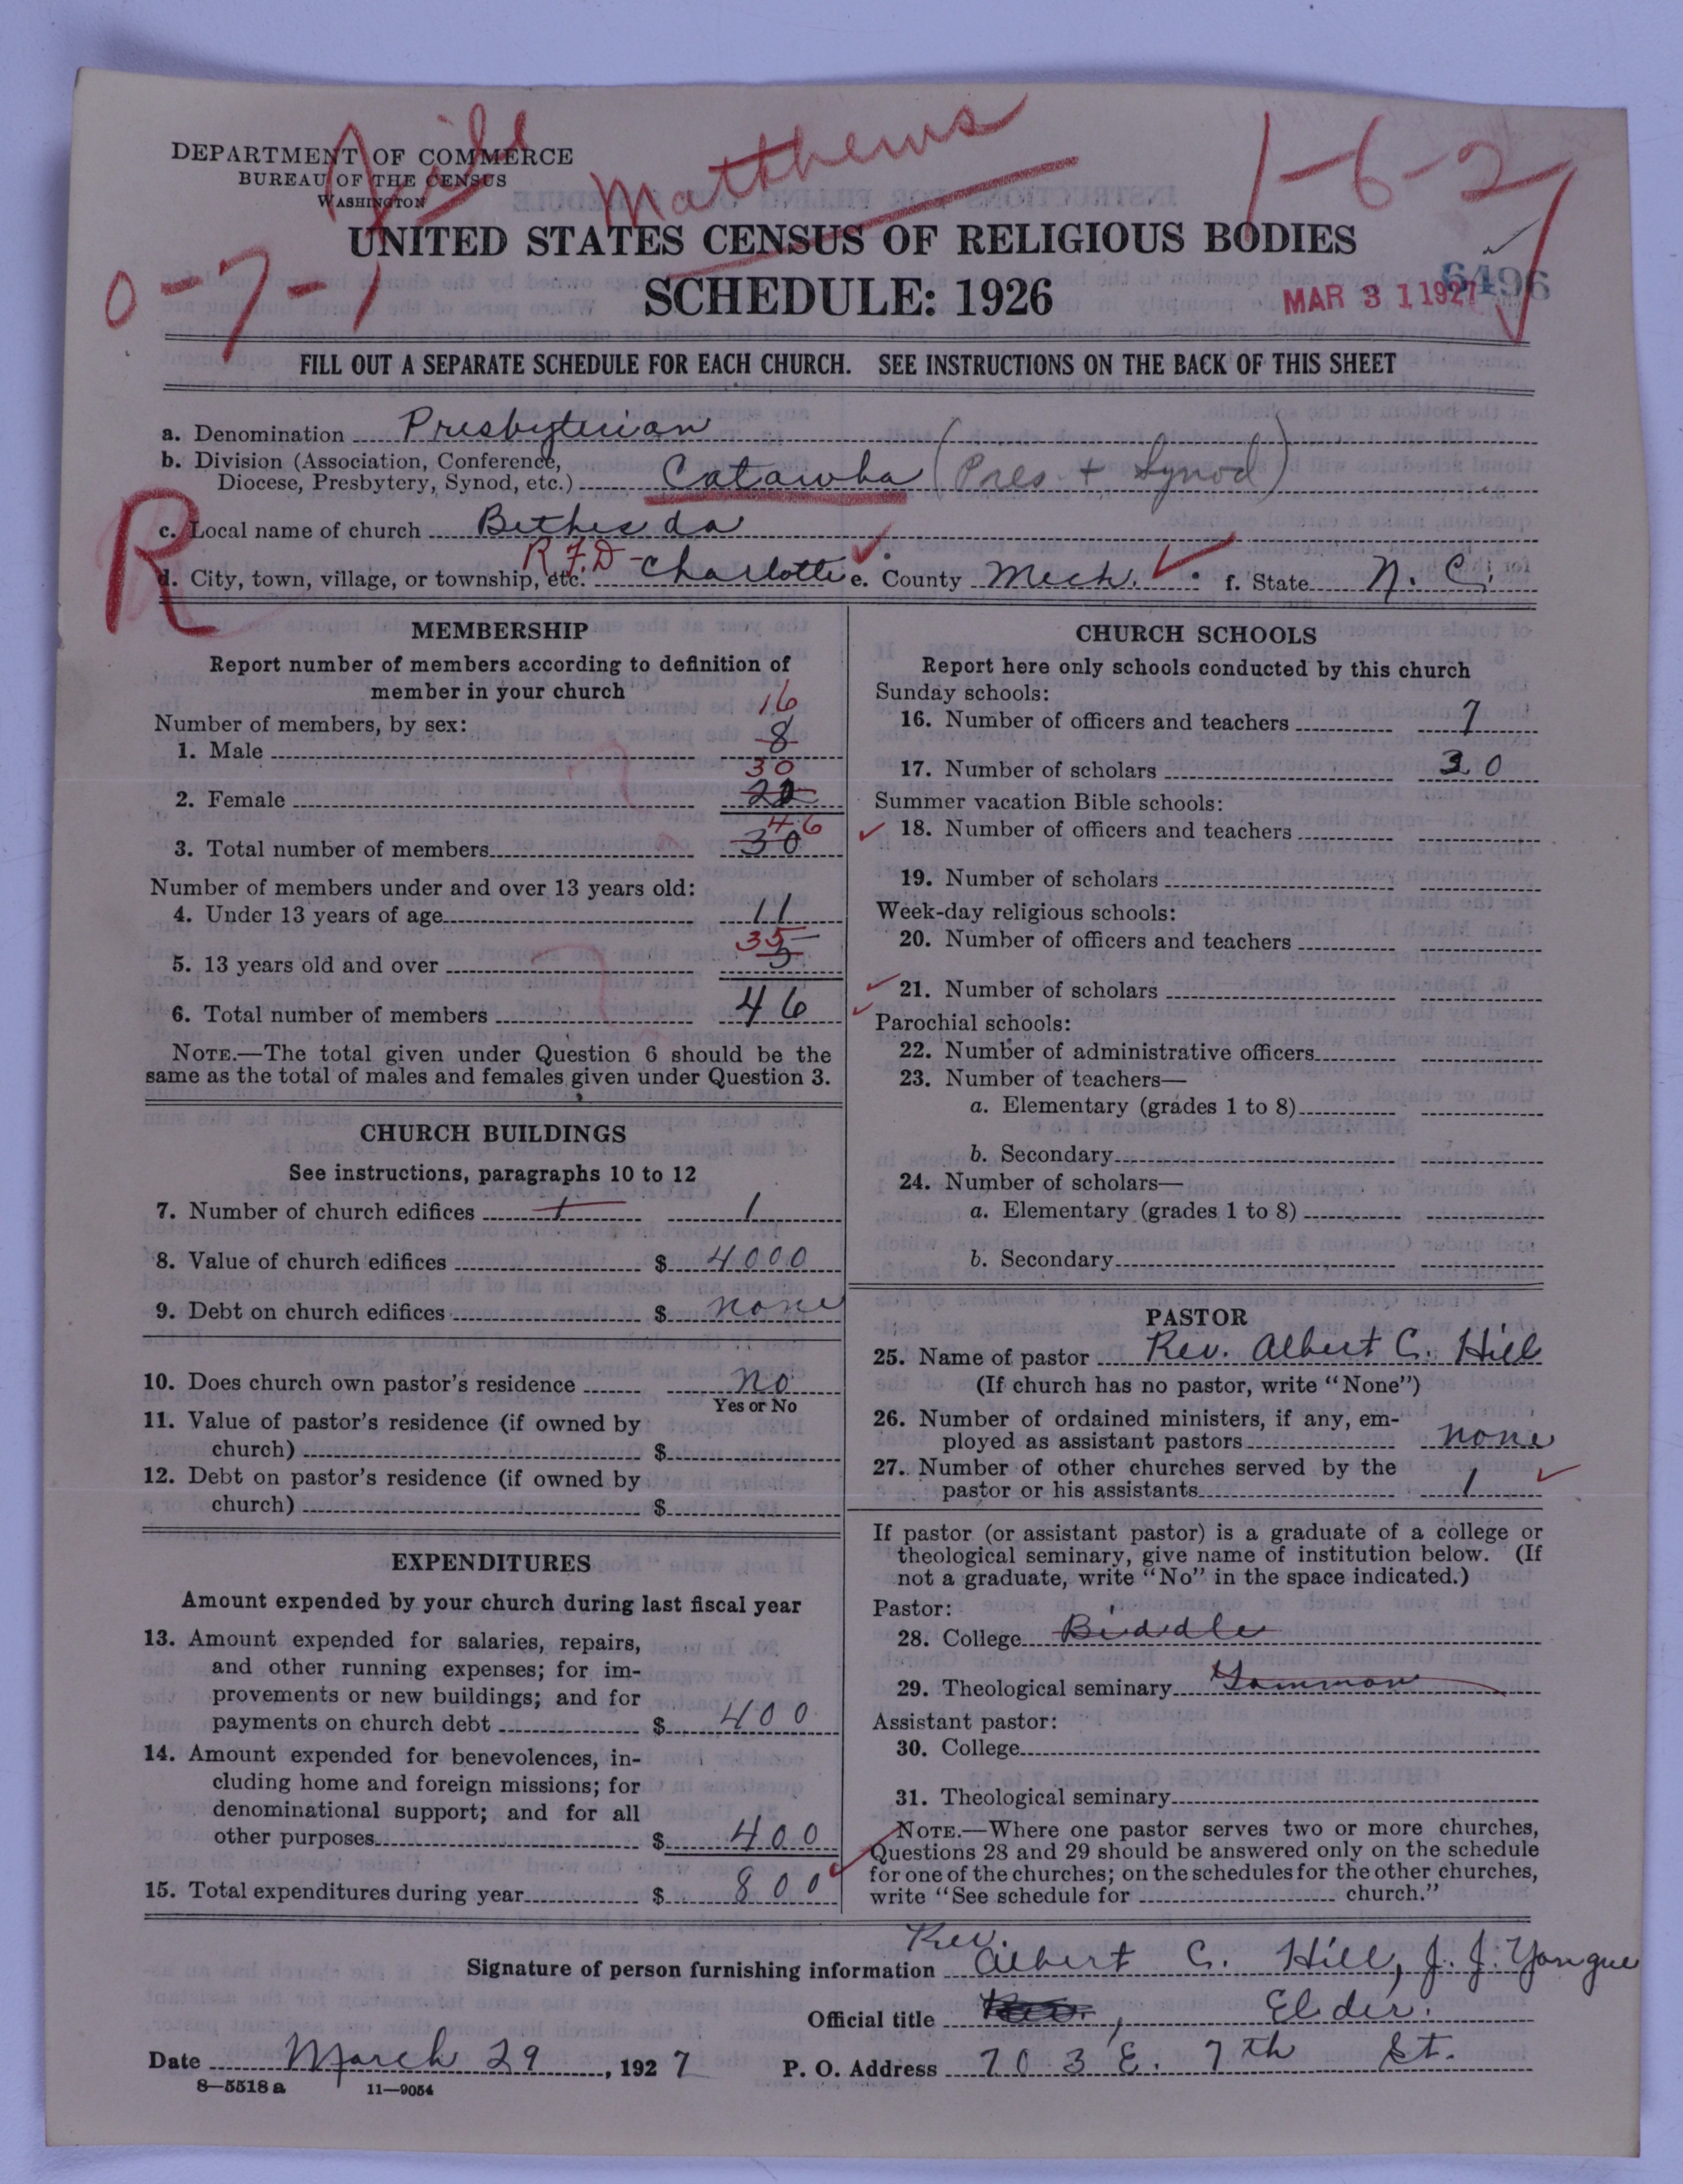 File Matthews 1-6-2
DEPARTMENT OF COMMERCE
BUREAU OF THE CENSUS
WASHINGTON
UNITED STATES CENSUS OF RELIGIOUS BODIES
0-7-1
SCHEDULE: 1926
MAR 31 1927 6496
FILL OUT A SEPARATE SCHEDULE FOR EACH CHURCH. SEE INSTRUCTIONS ON THE BACK OF THIS SHEET
a. Denomination Presbyterian
b. Division (Association, Conference,
Diocese, Presbytery, Synod, etc.) Catawba (Pres + Synod)
R
c. Local name of church Bethesda
d. City, town, village, or township, etc. R.F.D - Charlotte e. County Meck. f. State N. C.
MEMBERSHIP
Report number of members according to definition of
member in your church
Number of members, by sex:
16
1. Male 8
30
2. Female 22
46
3. Total number of members 30
Number of members under and over 13 years old:
4. Under 13 years of age 11
35
5. 13 years old and over 5
6. Total number of members 46
NOTE.—The total given under Question 6 should be the
same as the total of males and females given under Question 3.
CHURCH BUILDINGS
See instructions, paragraphs 10 to 12
7. Number of church edifices 1 1
8. Value of church edifices $ 4000
9. Debt on church edifices $ none
10. Does church own pastor's residence no
Yes or No
11. Value of pastor's residence (if owned by
church) $
12. Debt on pastor's residence (if owned by
church) $
EXPENDITURES
Amount expended by your church during last fiscal year
13. Amount expended for salaries, repairs,
and other running expenses; for im-
provements or new buildings; and for
payments on church debt $ 400
14. Amount expended for benevolences, in-
cluding home and foreign missions; for
denominational support; and for all
other purposes $ 400
15. Total expenditures during year $ 800
CHURCH SCHOOLS
Report here only schools conducted by this church
Sunday schools:
16. Number of officers and teachers 7
17. Number of scholars 30
Summer vacation Bible schools:
18. Number of officers and teachers
19. Number of scholars
Week-day religious schools:
20. Number of officers and teachers
21. Number of scholars
Parochial schools:
22. Number of administrative officers
23. Number of teachers—
a. Elementary (grades 1 to 8)
b. Secondary
24. Number of scholars—
a. Elementary (grades 1 to 8)
b. Secondary
PASTOR
25. Name of pastor Rev. Albert C. Hill
(If church has no pastor, write "None")
26. Number of ordained ministers, if any, em-
ployed as assistant pastors none
27. Number of other churches served by the
pastor or his assistants 1
If pastor (or assistant pastor) is a graduate of a college or
theological seminary, give name of institution below. (If
not a graduate, write "No" in the space indicated.)
Pastor:
28. College Biddle
29. Theological seminary Gammon
Assistant pastor:
30. College
31. Theological seminary
NOTE.—Where one pastor serves two or more churches,
Questions 28 and 29 should be answered only on the schedule
for one of the churches; on the schedules for the other churches,
write "See schedule for church."
Signature of person furnishing information Rev. Albert C. Hill, J. J. Yongue
Official title Rev., Elder.
Date March 29, 1927 P. O. Address 703 E. 7th St.
8—5518 a 11—9054